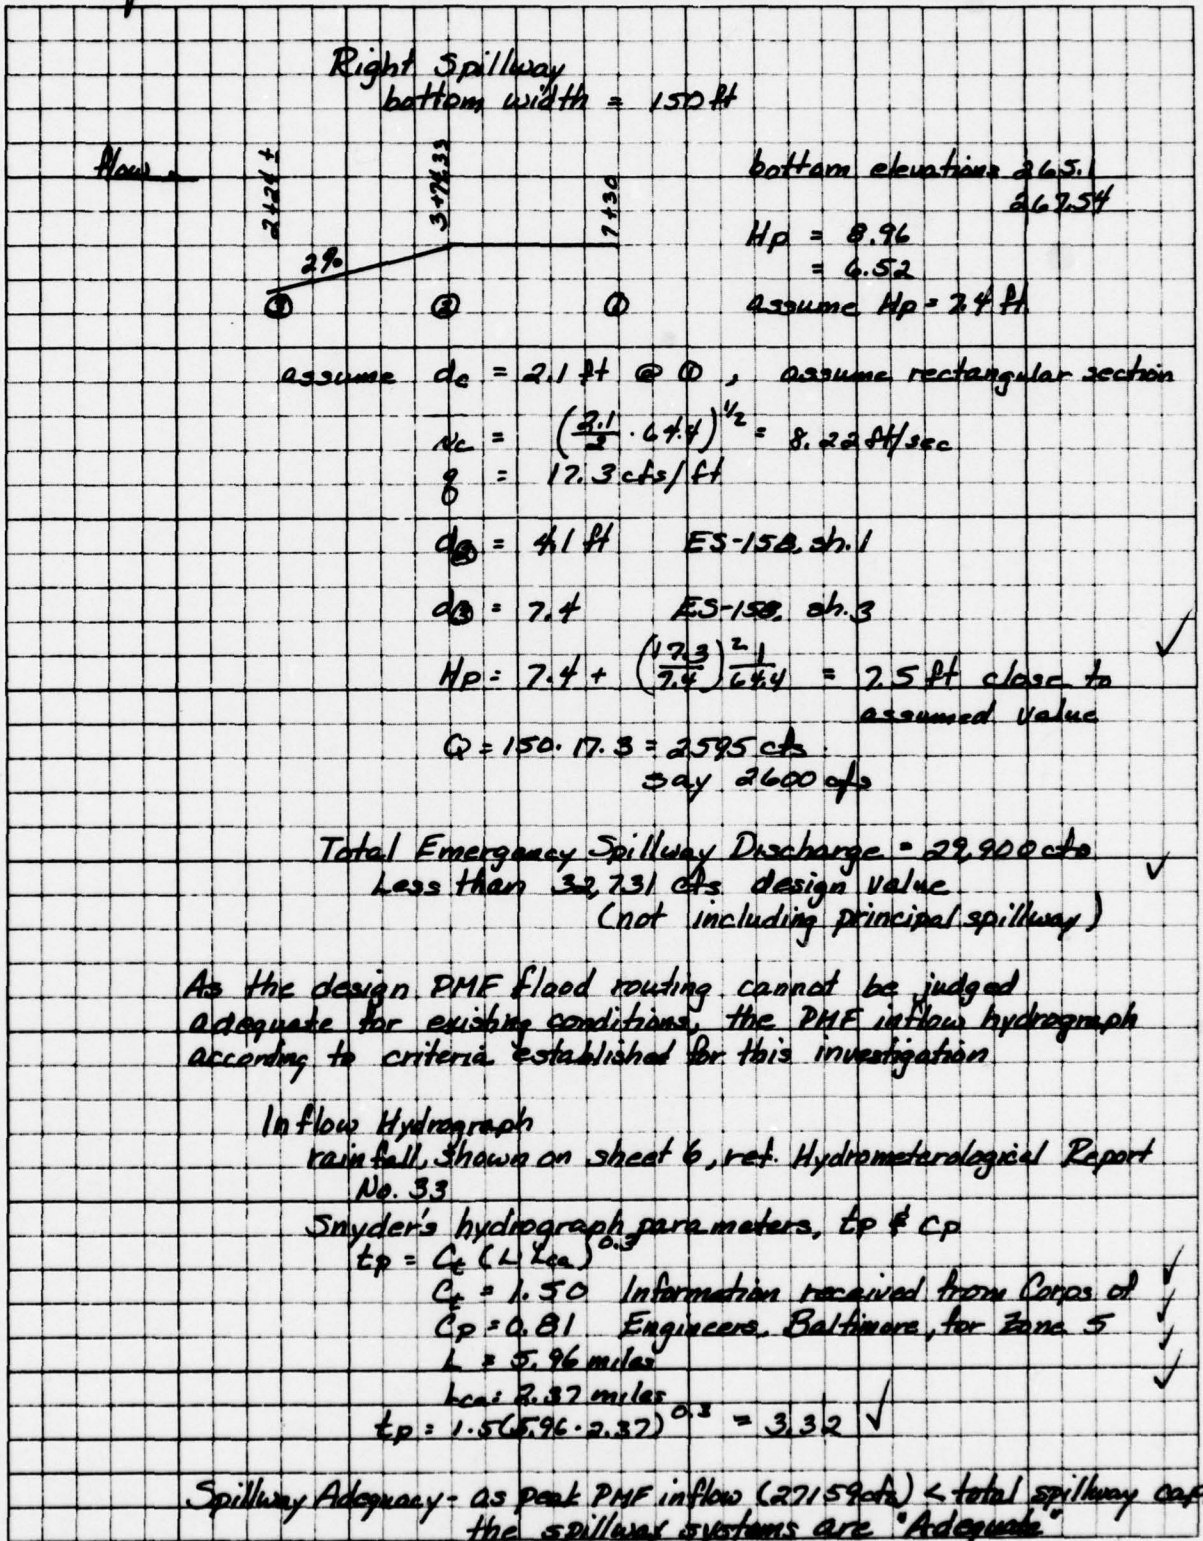 Right Spillway
bottom width = 150 ft
flow
2+24 ±
3+74.33
7+30
2%
③ ② ①
bottom elevations 265.1
267.54
Hp = 8.96
= 6.52
assume Hp = 7.4 ft
assume dc = 2.1 ft @ ①, assume rectangular section
vc = (2.1/2 · 64.4)^1/2 = 8.22 ft/sec
q = 17.3 cfs/ft
d② = 4.1 ft ES-158, sh. 1
d③ = 7.4 ES-158, sh. 3
Hp = 7.4 + (17.3/7.4)^2 1/64.4 = 7.5 ft close to
assumed value
Q = 150 · 17.3 = 2595 cfs
say 2600 cfs
Total Emergency Spillway Discharge = 29,900 cfs
Less than 32,731 cfs design value
(not including principal spillway)
As the design PMF flood routing cannot be judged
adequate for existing conditions, the PMF inflow hydrograph
according to criteria established for this investigation
Inflow Hydrograph
rainfall, shown on sheet 6, ref. Hydrometerological Report
No. 33
Snyder's hydrograph parameters, tp & Cp
tp = Ct (L Lca)^0.3
Ct = 1.50 Information received from Corps of
Cp = 0.81 Engineers, Baltimore, for Zone 5
L = 5.96 miles
Lca = 2.37 miles
tp = 1.5(5.96 · 2.37)^0.3 = 3.32 ✓
Spillway Adequacy - as peak PMF inflow (27159 cfs) < total spillway cap
the spillway systems are "Adequate"